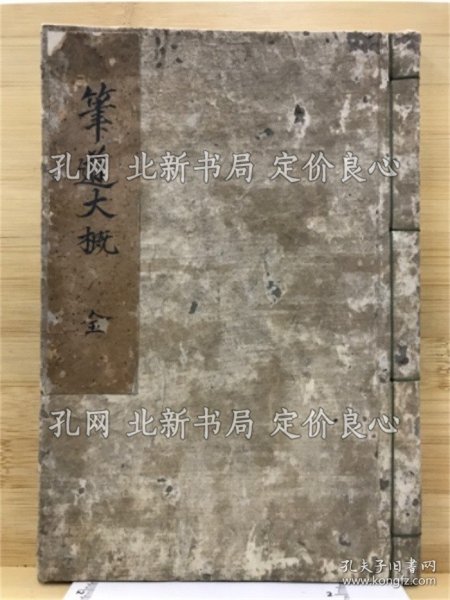 筆道大概
全
孔网 北新书局 定价良心
孔网 北新书局 定价良心
孔夫子旧书网
www.kongfz.com